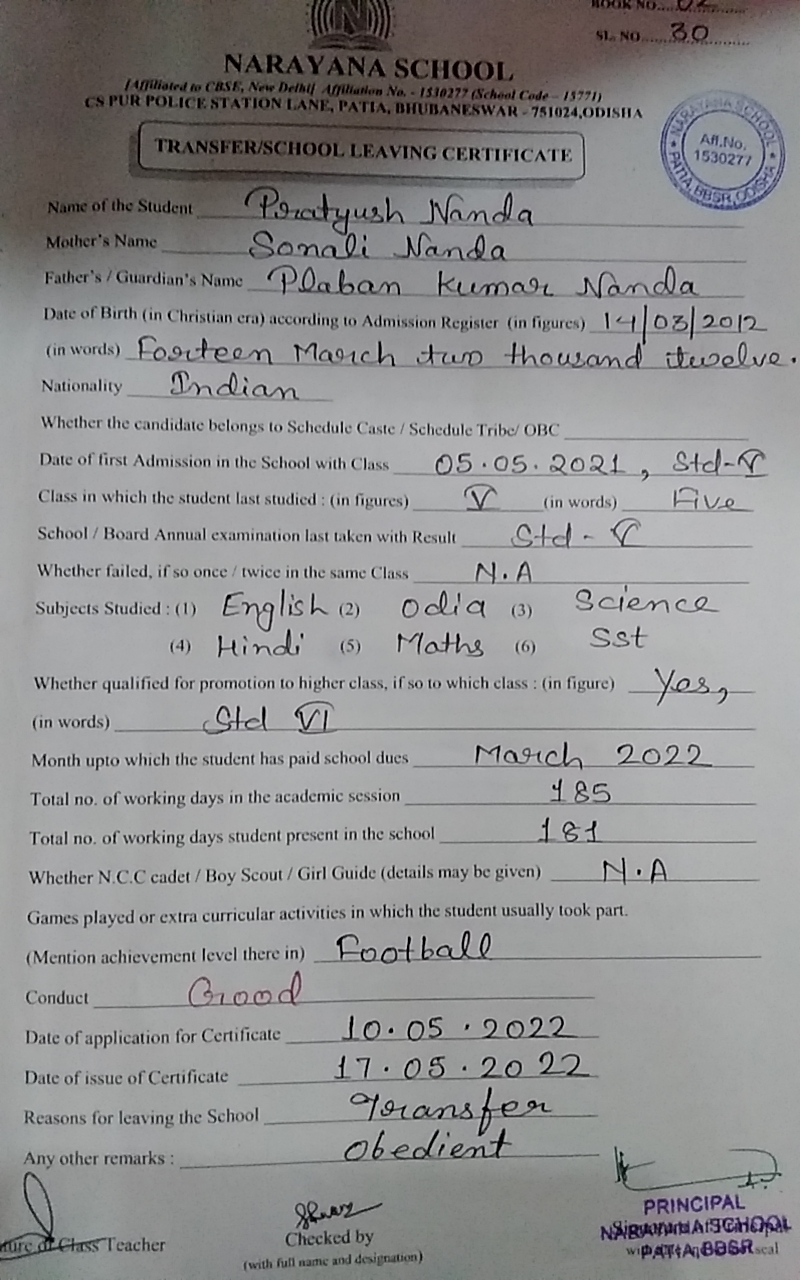 BOOK NO.....02
SL. NO......30
NARAYANA SCHOOL
[Affiliated to CBSE, New Delhi] Affiliation No. - 1530277 (School Code - 15771)
CS PUR POLICE STATION LANE, PATIA, BHUBANESWAR - 751024,ODISHA
TRANSFER/SCHOOL LEAVING CERTIFICATE
NARAYANA SCHOOL
Aff.No.
1530277
PATIA, BBSR, ODISHA
Name of the Student Pratyush Nanda
Mother's Name Sonali Nanda
Father's / Guardian's Name Plaban Kumar Nanda
Date of Birth (in Christian era) according to Admission Register (in figures) 14/03/2012
(in words) Forteen March two thousand twelve.
Nationality Indian
Whether the candidate belongs to Schedule Caste / Schedule Tribe/ OBC
Date of first Admission in the School with Class 05.05.2021, Std-V
Class in which the student last studied : (in figures) V (in words) Five
School / Board Annual examination last taken with Result Std - V
Whether failed, if so once / twice in the same Class N.A
Subjects Studied : (1) English (2) Odia (3) Science
(4) Hindi (5) Maths (6) Sst
Whether qualified for promotion to higher class, if so to which class : (in figure) Yes,
(in words) Std VI
Month upto which the student has paid school dues March 2022
Total no. of working days in the academic session 185
Total no. of working days student present in the school 181
Whether N.C.C cadet / Boy Scout / Girl Guide (details may be given) N.A
Games played or extra curricular activities in which the student usually took part.
(Mention achievement level there in) Football
Conduct Good
Date of application for Certificate 10.05.2022
Date of issue of Certificate 17.05.2022
Reasons for leaving the School Transfer
Any other remarks : Obedient
Class Teacher
Checked by
(with full name and designation)
PRINCIPAL
NARAYANA SCHOOL
PATIA, BBSR
seal